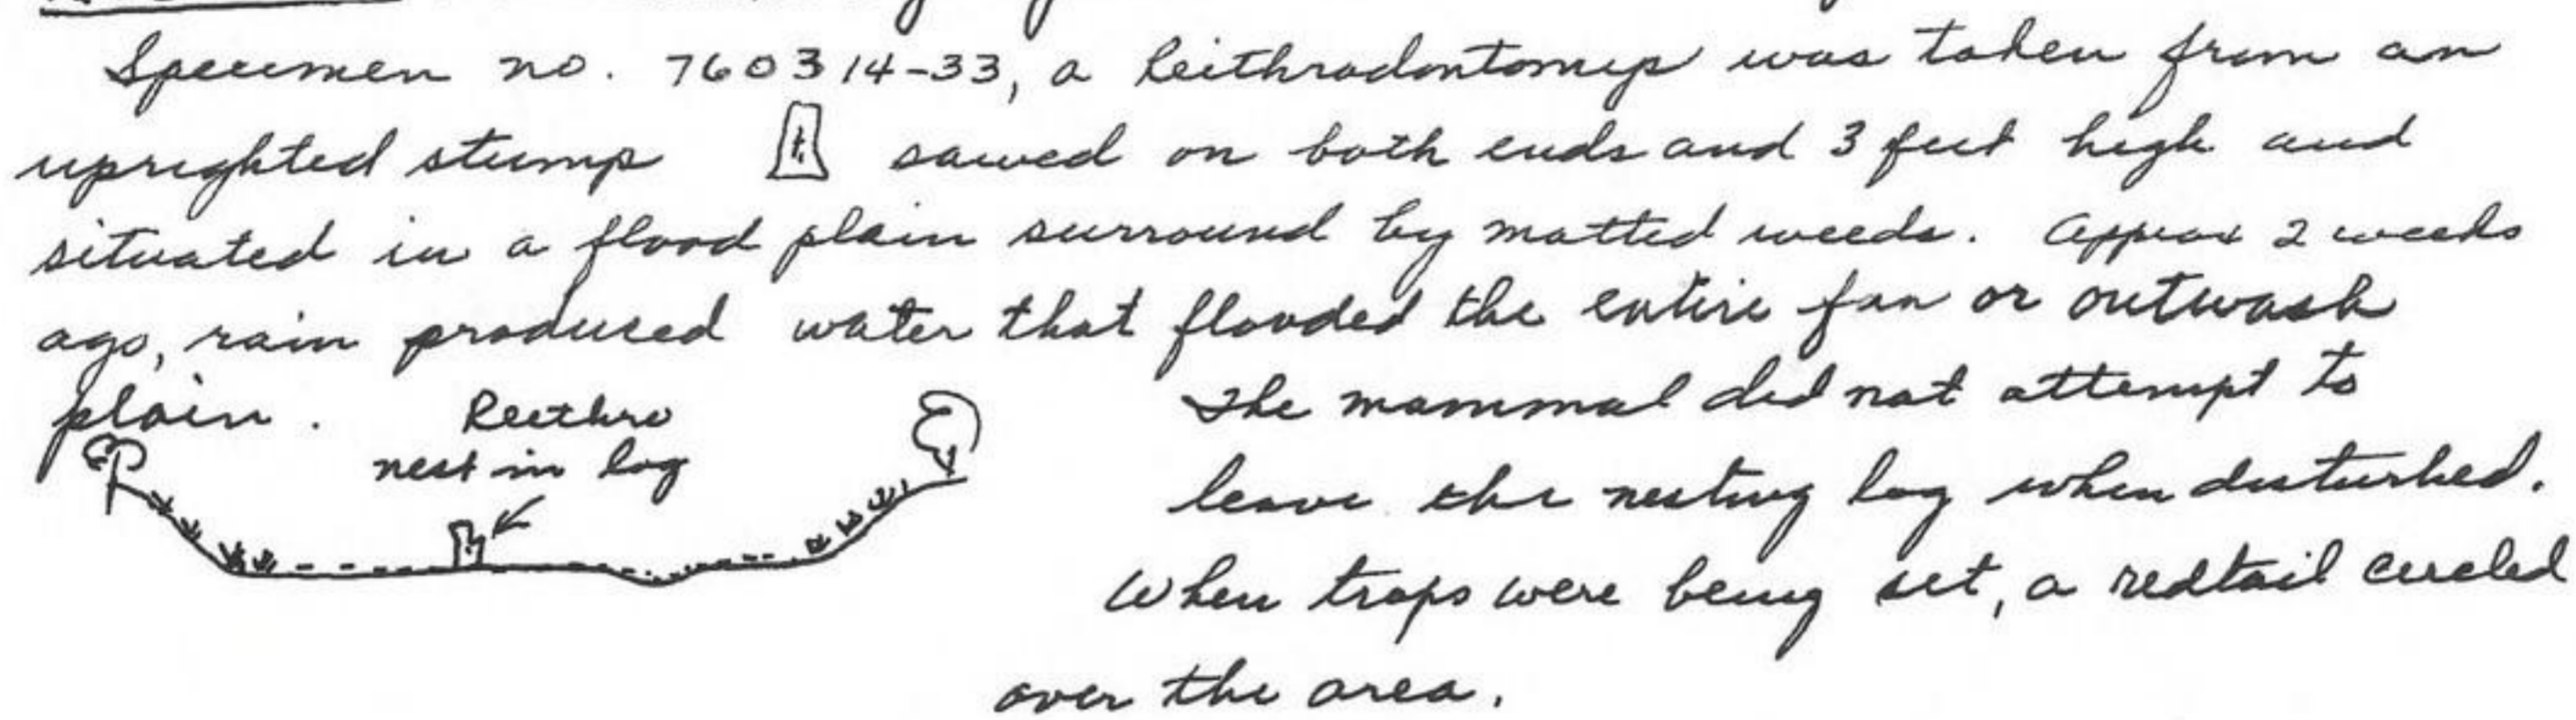 Specimen no. 760314-33, a Reithrodontomys was taken from an
uprighted stump sawed on both ends and 3 feet high and
situated in a flood plain surround by matted weeds. Approx 2 weeks
ago, rain produced water that flooded the entire fan or outwash
plain.
Reithro
nest in log
The mammal did not attempt to
leave the nesting log when disturbed.
When traps were being set, a redtail circled
over the area.